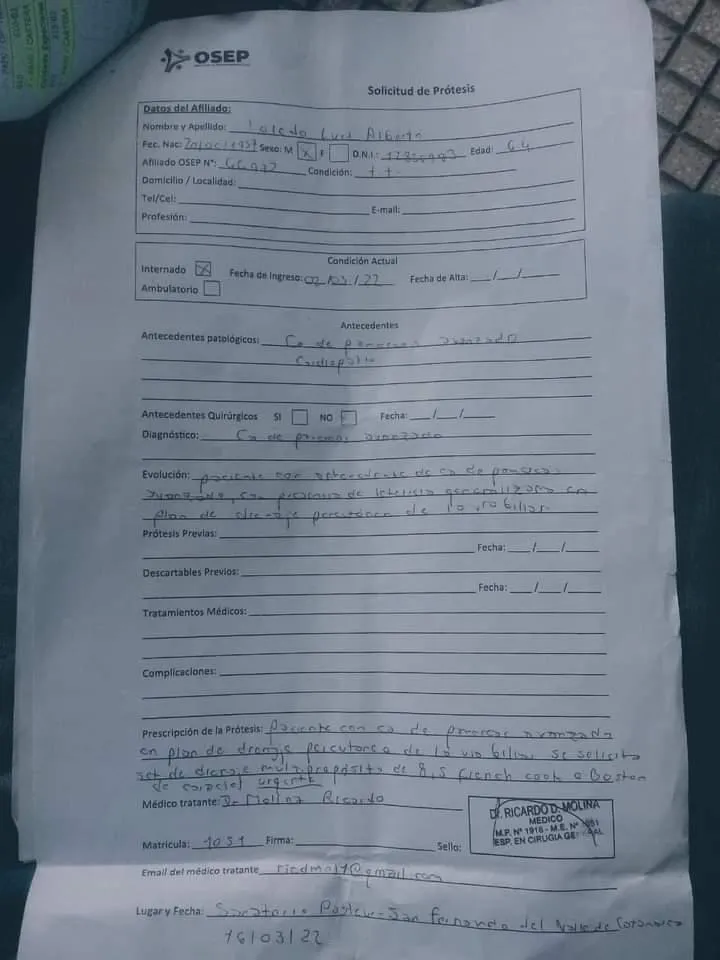 OSEP
Solicitud de Prótesis
Datos del Afiliado:
Nombre y Apellido: Toledo Luis Alberto
Fec. Nac: Sexo: M X F D.N.I.: Edad: 64
Afiliado OSEP N°: Condición:
Domicilio / Localidad:
Tel/Cel: E-mail:
Profesión:
Condición Actual
Internado X Fecha de Ingreso: 02/03/22 Fecha de Alta: __/__/__
Ambulatorio
Antecedentes
Antecedentes patológicos: Ca de pancreas avanzado
Cardiopatia
Antecedentes Quirúrgicos SI NO Fecha: __/__/__
Diagnóstico: Ca de pancreas avanzado
Evolución: paciente con antecedente de ca de pancreas
avanzado, con presencia de ictericia generalizada en
plan de drenaje percutaneo de la via biliar.
Prótesis Previas:
Fecha: __/__/__
Descartables Previos:
Fecha: __/__/__
Tratamientos Médicos:
Complicaciones:
Prescripción de la Prótesis: Paciente con ca de pancreas avanzado
en plan de drenaje percutaneo de la via biliar se solicita
set de drenaje multiproposito de 8,5 french cook o Boston
de caracter urgente
Médico tratante: Dr Molina Ricardo
Matricula: 1051 Firma: Sello:
Dr. RICARDO D. MOLINA
MEDICO
M.P. N° 1916 - M.E. N° 1051
ESP. EN CIRUGIA GENERAL
Email del médico tratante @gmail.com
Lugar y Fecha: Sanatorio Pasteur - San Fernando del Valle de Catamarca
16/03/22